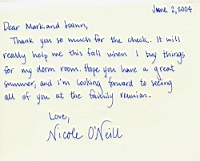 June 2, 2004
Dear Mark and Joann,
Thank you so much for the check. It will
really help me this fall when I buy things
for my dorm room. Hope you have a great
summer, and I'm looking forward to seeing
all of you at the family reunion.
Love,
Nicole O'Neill